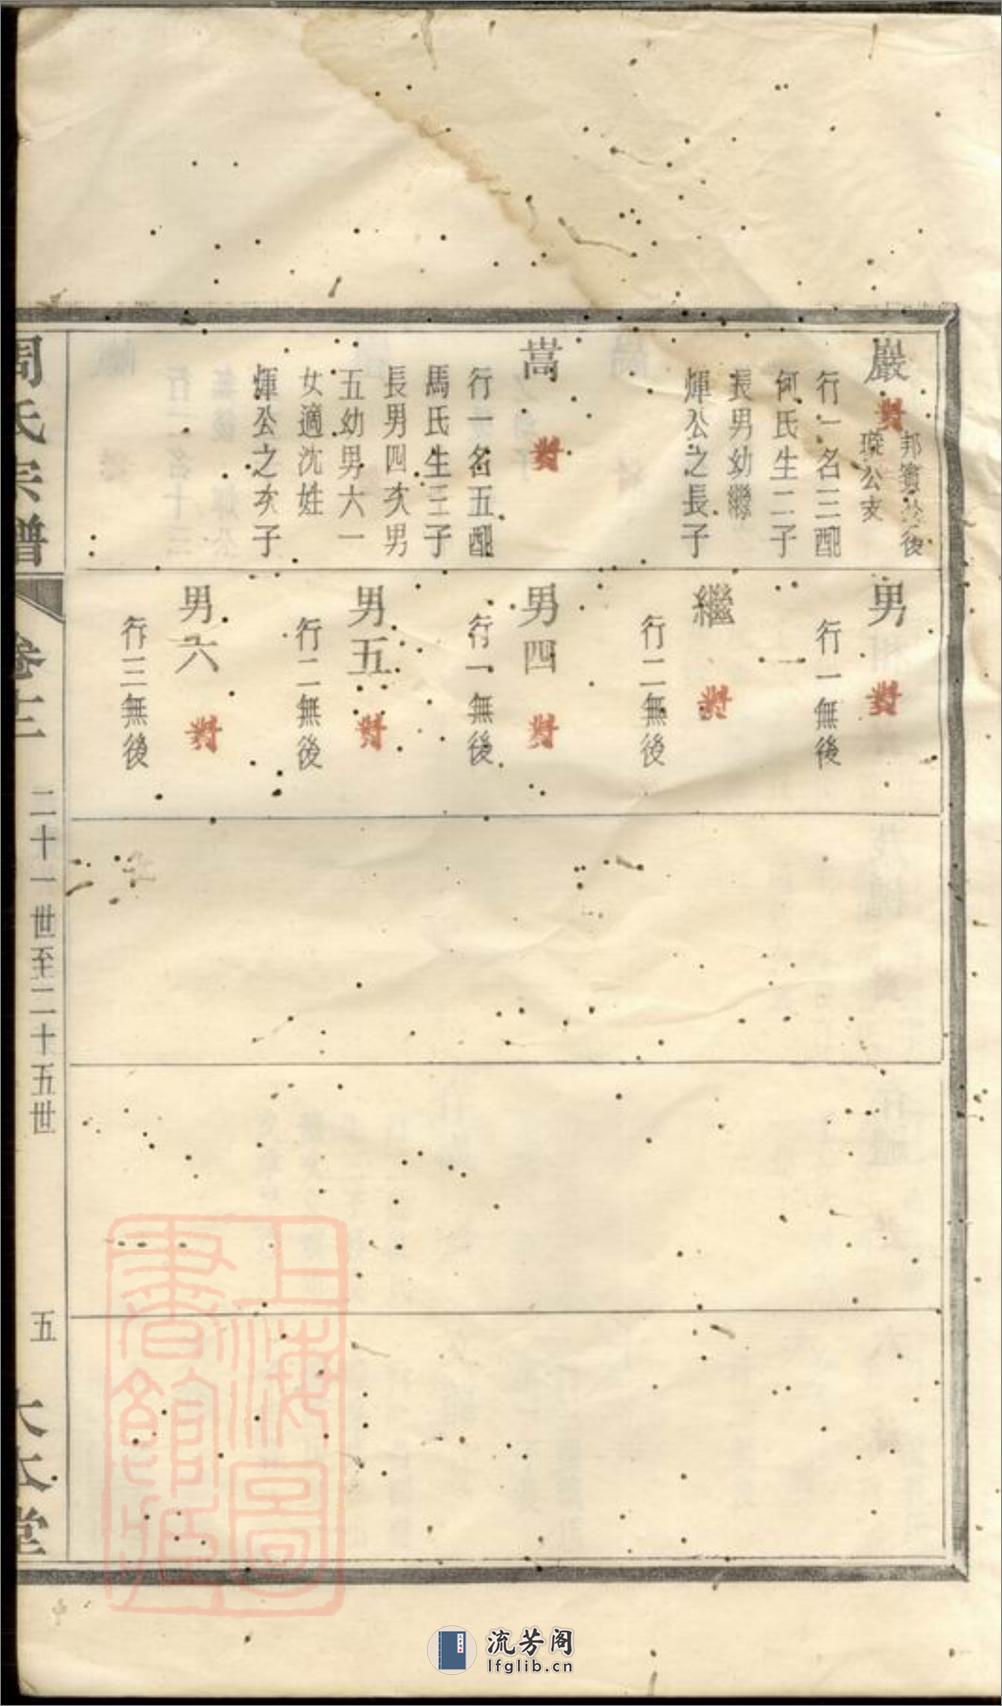 巖
對
邦賓公後
璨公支
行一名三配
何氏生二子
長男幼繼
煇公之長子
嵩
對
行一名五配
馬氏生三子
長男四次男
五幼男六一
女適沈姓
煇公之次子
男
對
行一無後
繼
對
行二無後
男四
對
行一無後
男五
對
行二無後
男六
對
行三無後
周氏宗譜
卷十二
二十一世至二十五世
五
大本堂
上海圖
書館藏
流芳阁
lfglib.cn